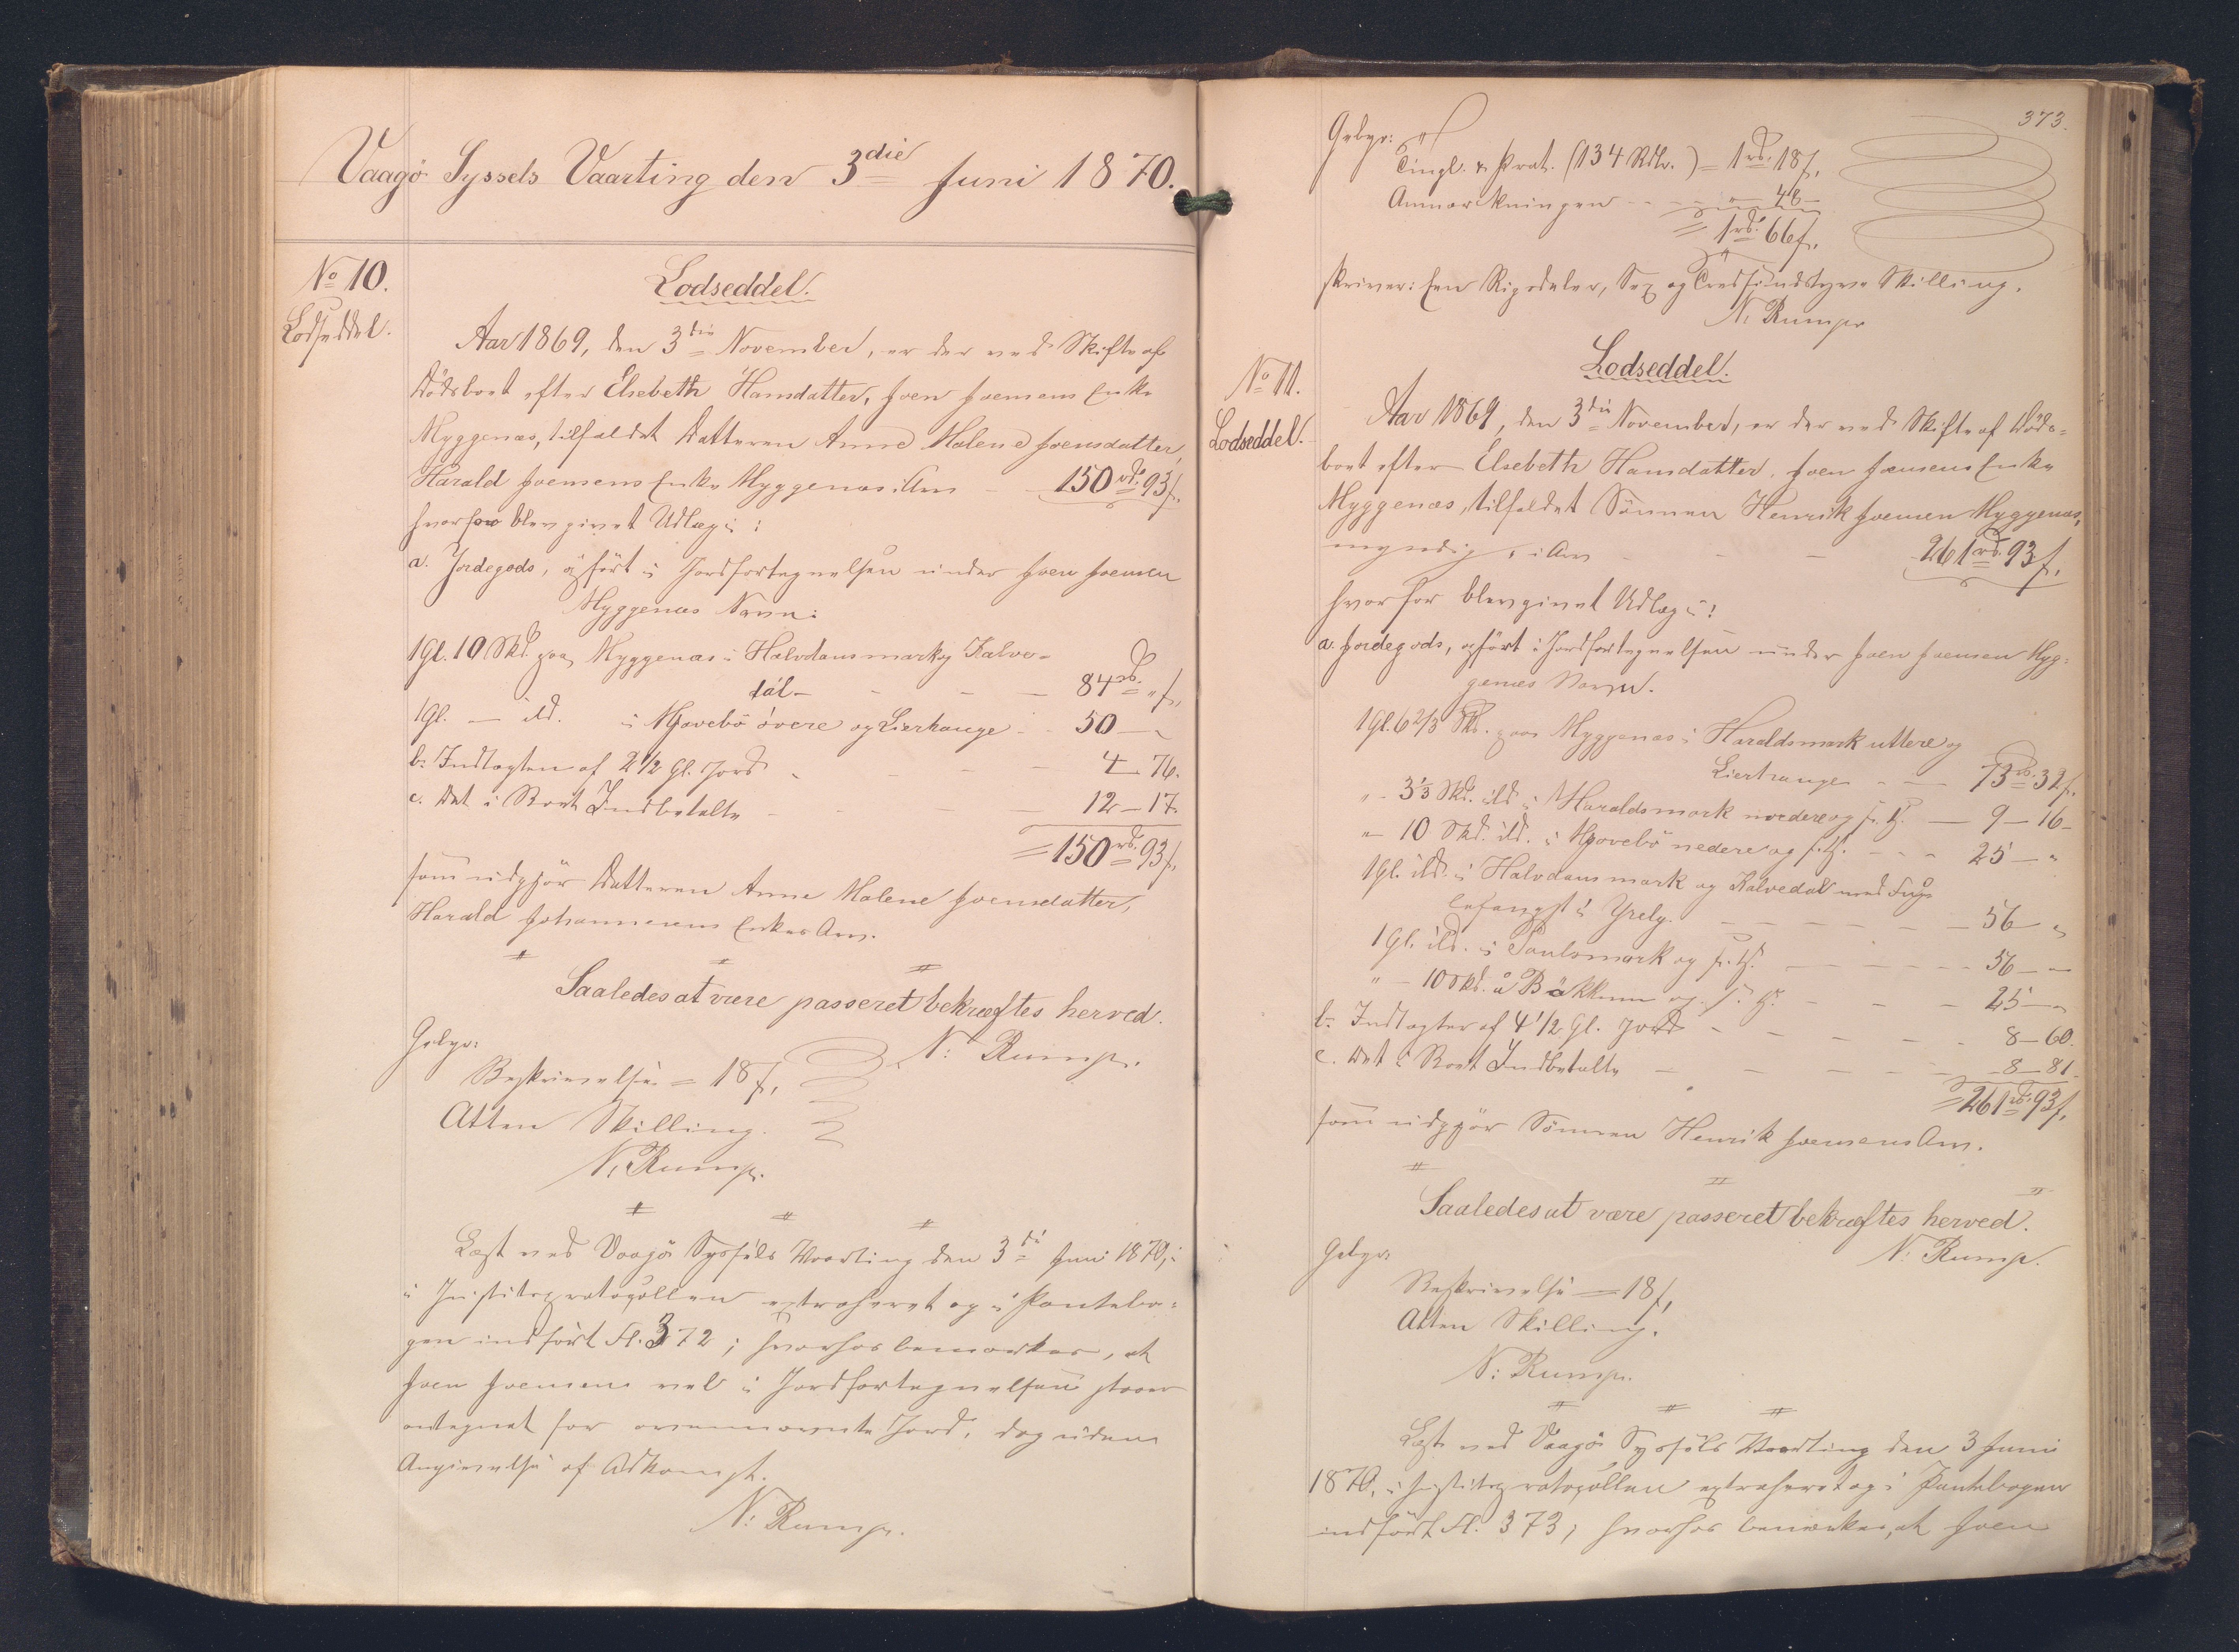 Vaagö Syssels Vaarting den 3die Juni 1870.
No 10.
Lodseddel.
Lodseddel.
Aar 1869, den 3die November, er der ved Skifte af
Dödsboet efter Elsebeth Hansdatter, Joen Joensens Enke
Myggenæs, tilfaldet Datteren Anne Malene Joensdatter,
Harald Joensens Enke Myggenæs i Arv - 150 rd. 93 ſ.
hvorfor blev givet Udlæg i:
a. Jordegods, opfört i Jordfortegnelsen under Joen Joensen
Myggenæs Navn:
1 Gl. 10 Skd. paa Myggenæs i Halvdansmark og Kalve=
dal - - - - 84 rd. „ ſ.
1 Gl. — ibd. i Mjovebö övere og Lierhauge - 50 — „
b. Indtægten af 2 1/2 Gl. Jord - - - - 4 — 76.
c. Det i Boet Indbetalte - - - 12 — 17.
= 150 rd. 93 ſ.
som udgjör Datteren Anne Malene Joensdatter,
Harald Johannesens Enkes Arv.
Saaledes at være passeret bekræftes herved.
N: Rump.
Gebyr:
Beskrivelse = 18 ſ.
Atten Skilling.
N. Rump.
Læst ved Vaagö Syssels Vaarting den 3die Juni 1870, i
i Justitsprotocollen extraheret og i Pantebo=
gen indfört Fl. 372; hvorhos bemærkes, at
Joen Joensen vel i Jordfortegnelsen staaer
antegnet for ovennævnte Jord, dog uden
Angivelse af Adkomst.
N: Rump.
373.
Gebyr:
Tingl. & Prot. (134 Rdlr.) = 1 rd. 18 ſ.
Anmærkningen - - - „ — 48 —
= 1 rd. 66 ſ.
skriver: Een Rigsdaler, Sex og Tredsindstyve Skilling.
N. Rump
No 11.
Lodseddel.
Lodseddel.
Aar 1869, den 3die November, er der ved Skifte af Döds=
boet efter Elsebeth Hansdatter, Joen Joensens Enke
Myggenæs, tilfaldet Sönnen Henrik Joensen Myggenæs,
myndig, i Arv - - - 261 rd. 93 ſ.
hvorfor blev givet Udlæg i:
a. Jordegods, opfört i Jordfortegnelsen under Joen Joensen Myg=
genæs Navn.
1 Gl. 6 2/3 Skd. paa Myggenæs i Haraldsmark uttere og
Lierhauge - - - 73 rd. 32 ſ.
„ - 3 1/3 Skd. ibd. i Haraldsmark nordere og s. H. — 9 — 16 —
„ - 10 Skd. ibd. i Mjovebö nedere og s. H. - - - 25 — „
1 Gl. ibd. i Halvdansmark og Kalvedal med Fug=
lefangst i - - - - - 56 — „
1 Gl. ibd. i Poulsmark og s. H. - - - - 56 — „
„ - 10 Skd. i Bakkum og s. H. - - - 25 — „
b. Indtægter af 4 1/2 Gl. Jord - - - - 8 — 60.
c. Det i Boet Indbetalte - - - - 8 — 81.
= 261 rd. 93 ſ.
som udgjör Sönnen Henrik Joensens Arv.
Saaledes at være passeret bekræftes herved.
N: Rump.
Gebyr:
Beskrivelse — 18 ſ.
Atten Skilling.
N: Rump.
Læst ved Vaagö Syssels Vaarting den 3 Juni
1870, i Justitsprotocollen extraheret og i Pantebogen
indfört Fl. 373; hvorhos bemærkes, at Joen